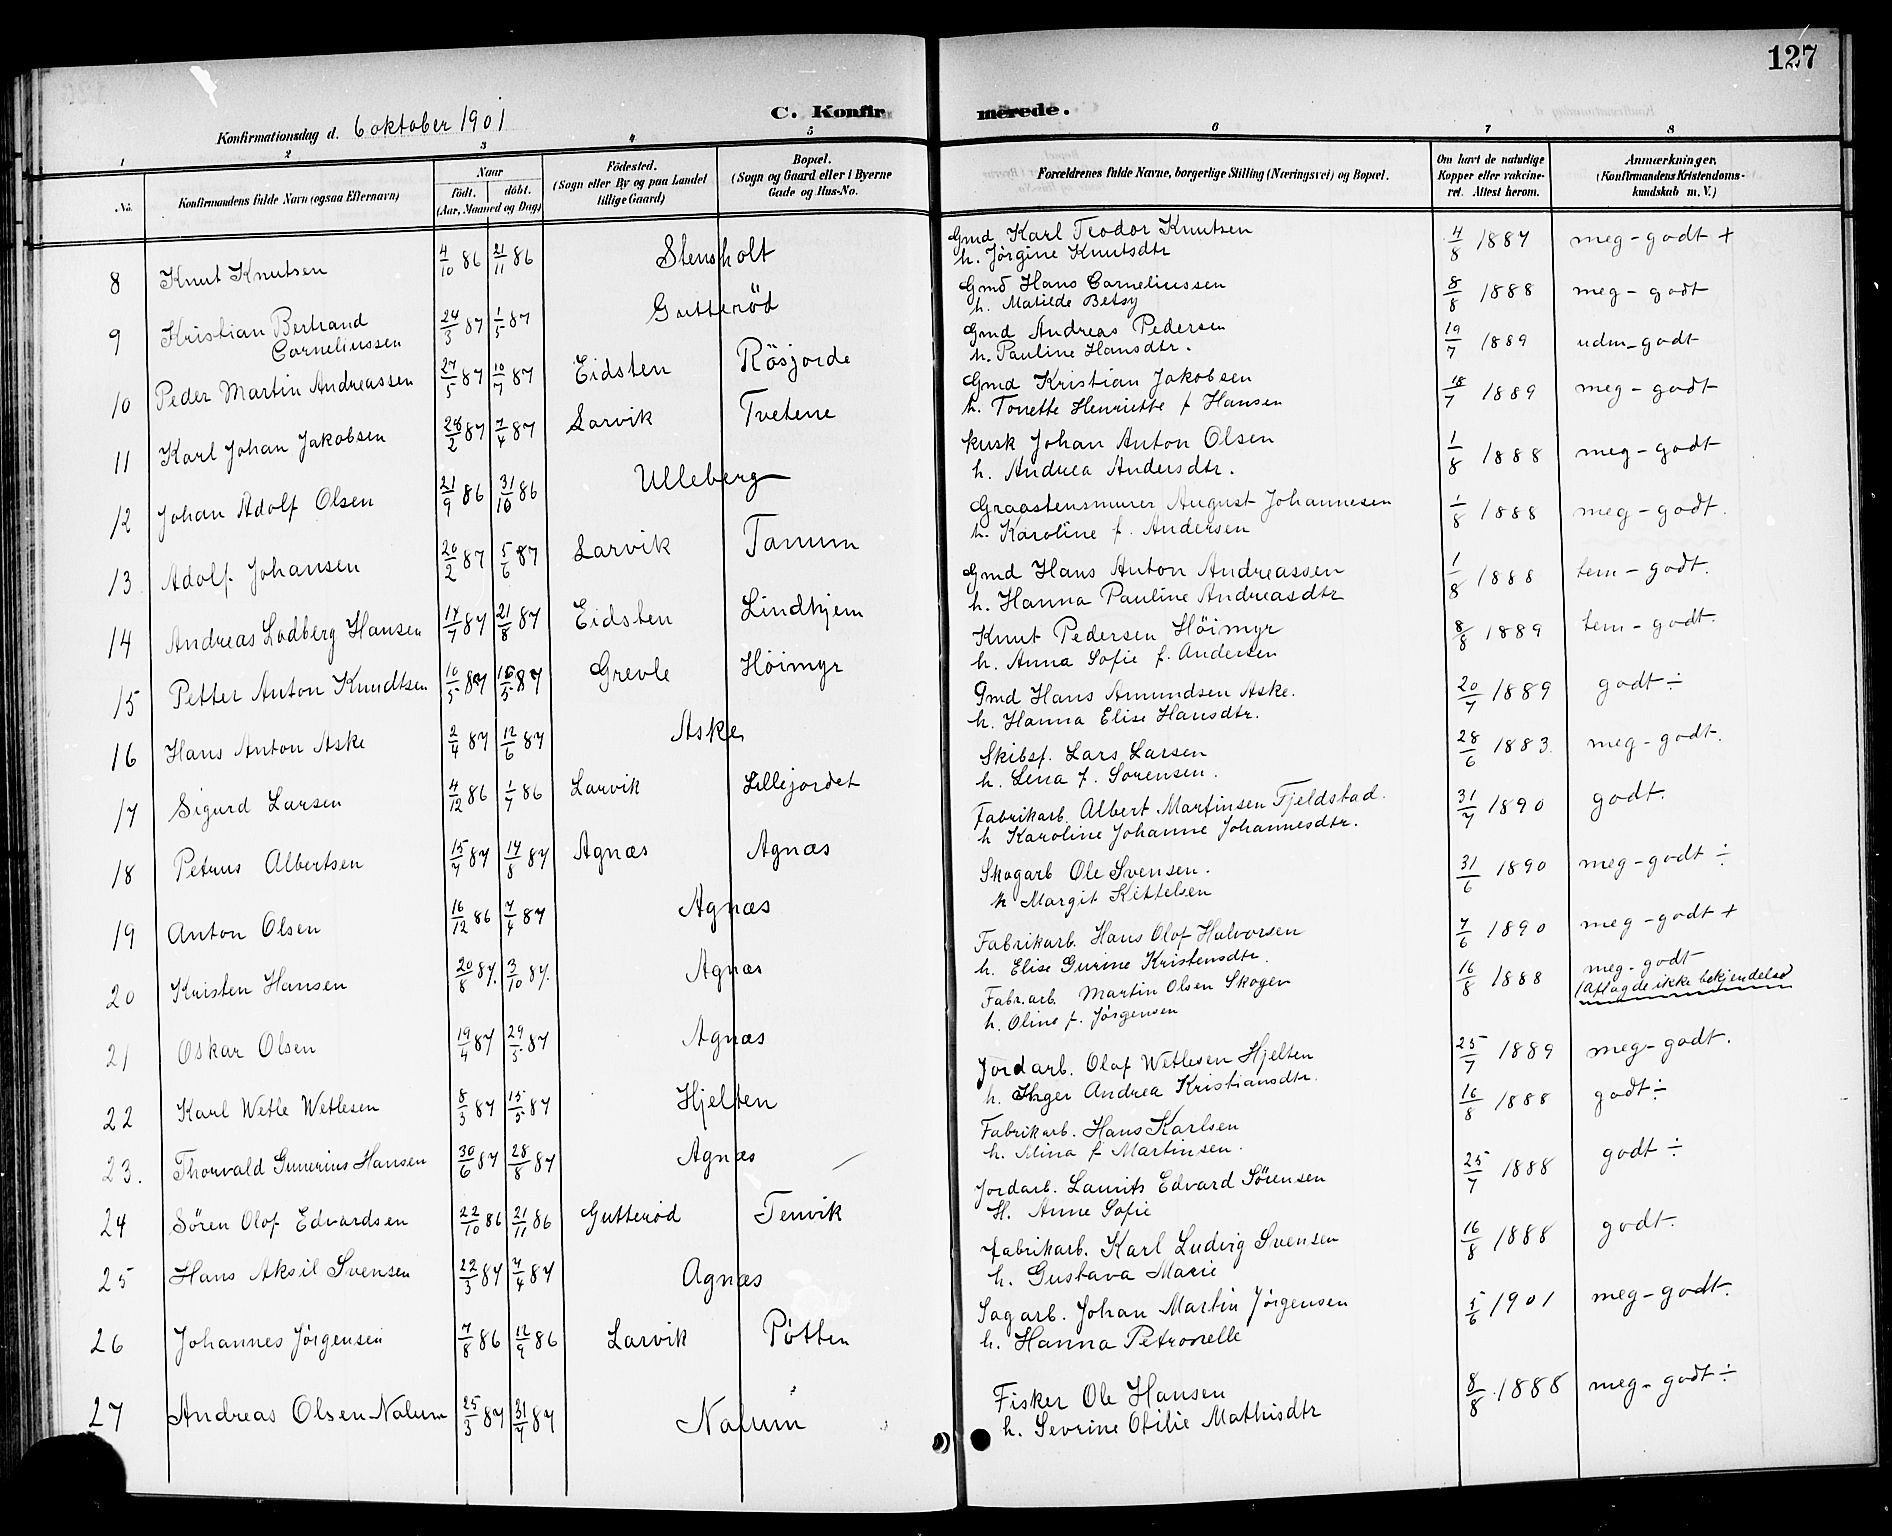 127
C. Konfirmerede.
Konfirmationsdag d. 6 oktober 1901
1 2 3 4 5 6 7 8
No. Konfirmandens fulde Navn (ogsaa Efternavn) Naar født. døbt. (Aar, Maaned og Dag) Fødested. (Sogn eller By og paa Landet tillige Gaard) Bopæl. (Sogn og Gaard eller i Byerne Gade og Hus-No. Forældrenes fulde Navne, borgerlige Stilling (Næringsvei) og Bopæl. Om havt de naturlige Kopper eller vakcineret. Attest herom. Anmærkninger. (Konfirmandens Kristendomskundskab m. V.)
8 Knut Knutsen 4/10 86 21/11 86 Stensholt Gmd Karl Teodor Knutsen h. Jørgine Knutsdtr 4/8 1887 meg-godt +
9 Kristian Bertrand Corneliussen 24/3 87 1/5 87 Gutterød Gmd Hans Corneliussen h. Matilde Betsy 8/8 1888 meg-godt
10 Peder Martin Andreassen 27/5 87 10/7 87 Eidsten Røsjorde Gmd Andreas Pedersen h. Pauline Hansdtr. 19/7 1889 udm-godt
11 Karl Johan Jakobsen 28/2 87 7/4 87 Larvik Tvetene Gmd Kristian Jakobsen h. Tonette Henriette f Hansen 18/7 1889 meg-godt
12 Johan Adolf Olsen 21/9 86 31/10 86 Ulleberg Kusk Johan Anton Olsen h. Andrea Andersdtr. 1/8 1888 meg-godt
13 Adolf Johansen 20/2 87 5/6 87 Larvik Tanum Graastensmurer August Johannesen h. Karoline f. Andersen 1/8 1888 meg-godt.
14 Andreas Lodberg Hansen 14/7 87 21/8 87 Eidsten Lindhjem Gmd Hans Anton Andreassen h. Hanna Pauline Andreasdtr 1/8 1888 tem-godt.
15 Petter Anton Knudtsen 10/5 87 15/5 87 Grevle Høimyr Knut Pedersen Høimyr h. Anna Sofie f. Andersen 8/8 1889 tem-godt.
16 Hans Anton Aske 2/4 87 12/6 87 Aske Gmd Hans Amundsen Aske. h. Hanna Elise Hansdtr. 20/7 1889 godt ÷
17 Sigurd Larsen 4/12 86 1/7 86 Larvik Lillejordet Skibsf. Lars Larsen h. Lena f. Sørensen. 28/6 1883. meg-godt.
18 Petrus Albertsen 15/7 87 14/8 87 Agnæs Agnæs Fabrikarb. Albert Martinsen Fjeldstad. h Karoline Johanne Johannesdtr. 31/7 1890 godt.
19 Anton Olsen 16/12 86 7/4 87 Agnæs Skogarb Ole Svensen. h Margit Kittelsen 31/6 1890 meg-godt ÷
20 Kristen Hansen 20/8 87. 3/10 87. Agnæs Fabrikarb. Hans Olof Halvorsen h. Elise Gurine Kristensdtr. 7/6 1890 meg-godt +
21 Oskar Olsen 19/4 87 29/5 87 Agnæs Fabr.arb. Martin Olsen Skogen h. Oline f. Jørgensen 16/8 1888 meg-godt (Aflagde ikke bekjendelse)
22 Karl Wetle Wetlesen 8/3 87 15/5 87 Hjelten Jordarb. Olaf Wetlesen Hjelten h. Inger Andrea Kristiansdtr. 25/7 1889 meg-godt.
23. Thorvald Gunerius Hansen 30/6 87 28/8 87 Agnæs Fabrikarb. Hans Karlsen h. Mina f Martinsen. 16/8 1888 godt ÷
24 Søren Olof Edvardsen 22/10 86 21/11 86 Gutterød Tenvik Jordarb. Laurits Edvard Sørensen H. Anne Sofie 25/7 1888 godt ÷
25 Hans Aksil Svensen 22/3 87 7/4 87 Agnæs Fabrikarb. Karl Ludvig Svensen h. Gustava Marie 16/8 1888 godt.
26 Johannes Jørgensen 7/8 86 12/9 86 Larvik Pøtten Sagarb. Johan Martin Jørgensen h. Hanna Petronelle 5/6 1901 meg-godt.
27 Andreas Olsen Nalum 25/3 87 31/7 87 Nalum Fisker Ole Hansen h. Sevrine Otilie Mathisdtr 8/8 1888 meg-godt ÷